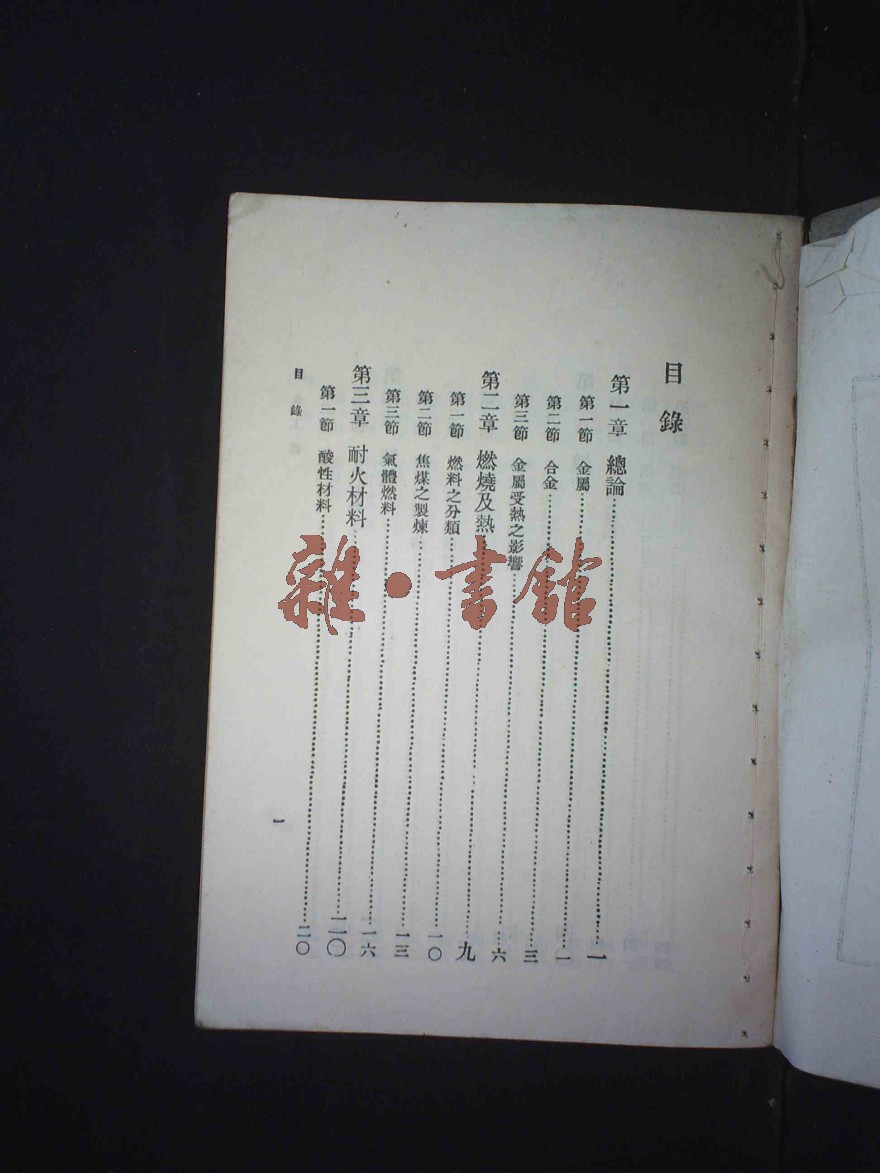 目錄
第一章 總論……一
第一節 金屬……一
第二節 合金……三
第三節 金屬受熱之影響……六
第二章 燃燒及熱……九
第一節 燃料之分類……一〇
第二節 焦煤之製煉……一三
第三節 氣體燃料……一六
第三章 耐火材料……二〇
第一節 酸性材料……二〇
目錄
一
雜·書館